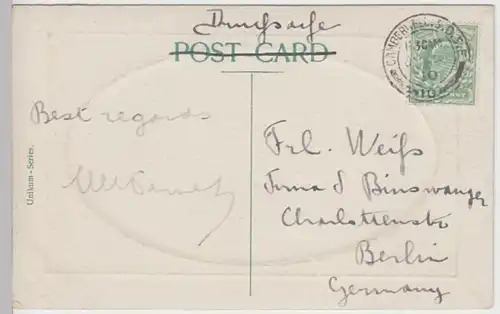 Drucksache
POST CARD
Best regards
Frl. Weiß
Firma S Binswanger
Charlottenstr
Berlin
Germany
Unikum-Series.
10
10